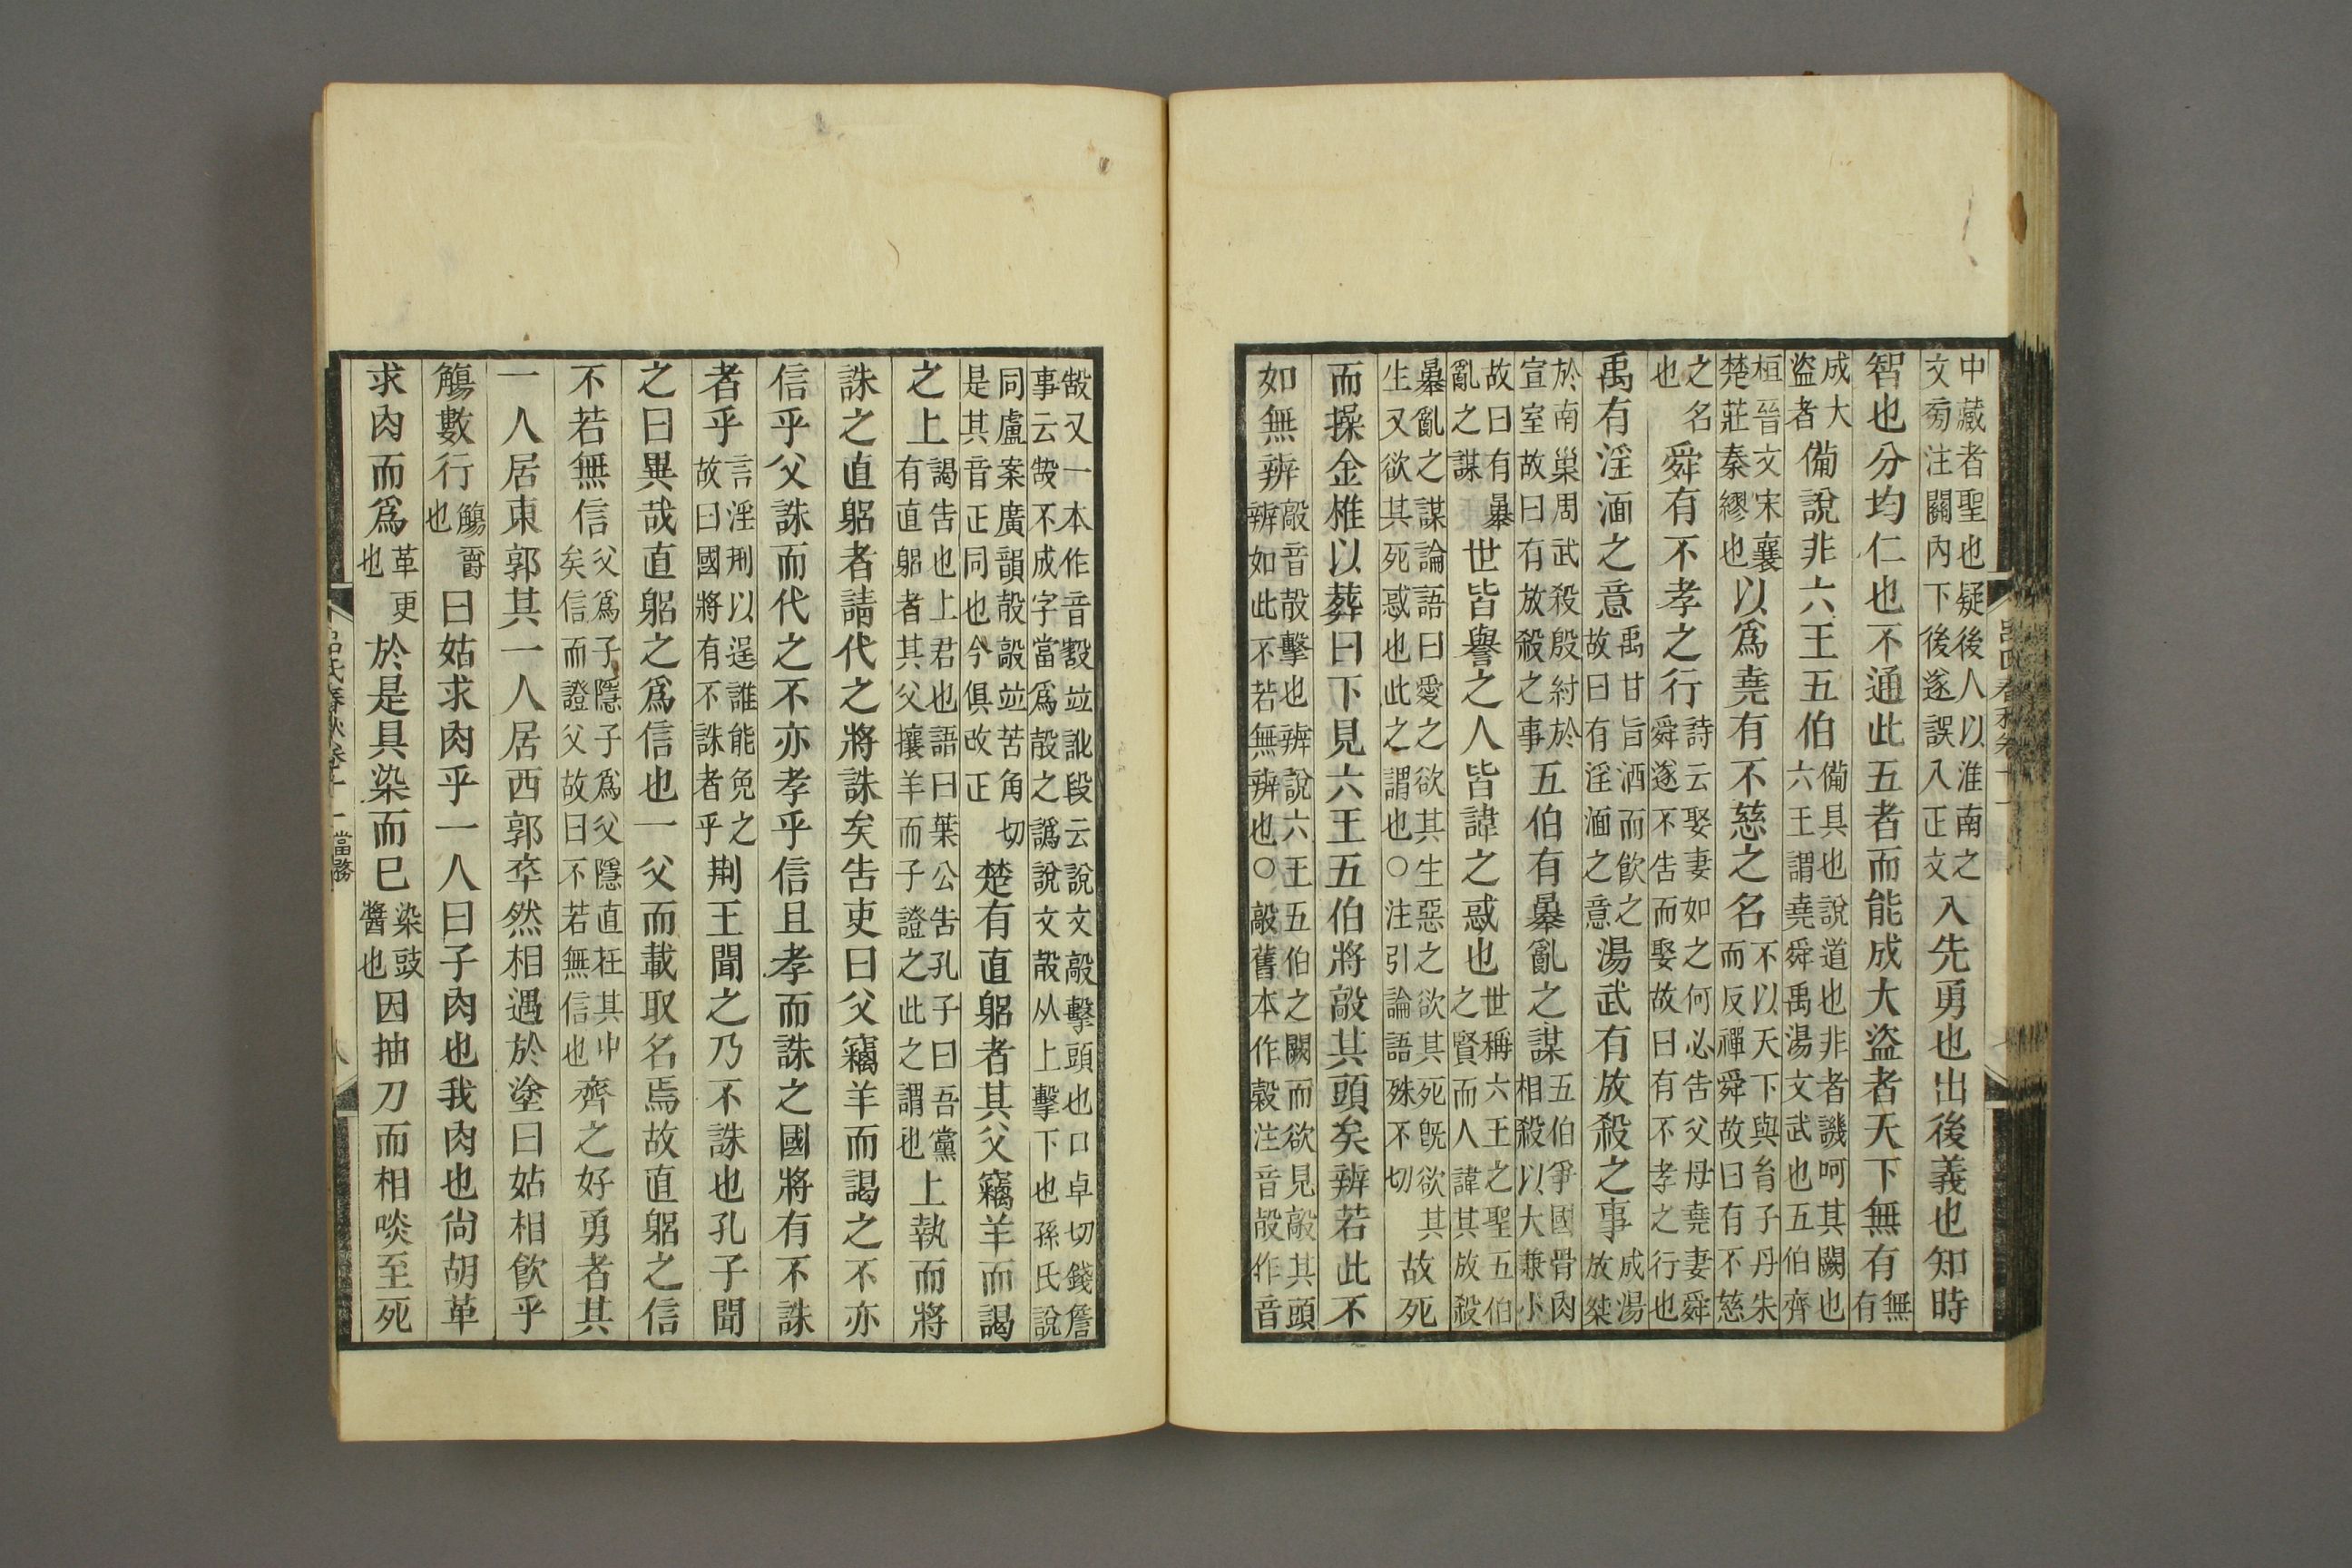 中藏者聖也疑後人以淮南之文㫄注闕內下後遂誤入正文入先勇也出後義也知時
智也分均仁也不通此五者而能成大盜者天下無有無有
成大盜者備說非六王五伯備具也說道也非者譏呵其闕也六王謂堯舜禹湯文武也五伯齊
桓晉文宋襄楚莊秦繆也以爲堯有不慈之名不以天下與胤子丹朱而反禪舜故曰有不慈
之名也舜有不孝之行詩云娶妻如之何必告父母堯妻舜舜遂不告而娶故曰有不孝之行也
禹有淫湎之意禹甘旨酒而飮之故曰有淫湎之意湯武有放殺之事成湯放桀
於南巢周武殺殷紂於宣室故曰有放殺之事五伯有暴亂之謀五伯爭國骨肉相殺以大兼小
故曰有暴亂之謀世皆譽之人皆諱之惑也世稱六王之聖五伯之賢而人諱其放殺
暴亂之謀論語曰愛之欲其生惡之欲其死旣欲其生又欲其死惑也此之謂也○注引論語殊不切故死
而操金椎以葬曰下見六王五伯將敲其頭矣辨若此不
如無辨敲音㱿擊也辨說六王五伯之闕而欲見敲其頭辨如此不若無辨也○敲舊本作㲄注音㱿作音
㱿又一本作音縠竝訛段云說文敲擊頭也口卓切錢詹事云㱿不成字當爲㱿之譌說文㱿从上擊下也孫氏說
同盧案廣韻㱿敲竝苦角切是其音正同也今俱改正楚有直躬者其父竊羊而謁
之上謁告也上君也語曰葉公告孔子曰吾黨有直躬者其父攘羊而子證之此之謂也上執而將
誅之直躬者請代之將誅矣告吏曰父竊羊而謁之不亦
信乎父誅而代之不亦孝乎信且孝而誅之國將有不誅
者乎言淫刑以逞誰能免之故曰國將有不誅者乎荆王聞之乃不誅也孔子聞
之曰異哉直躬之爲信也一父而載取名焉故直躬之信
不若無信父爲子隱子爲父隱直在其中矣信而證父故曰不若無信也齊之好勇者其
一人居東郭其一人居西郭卒然相遇於塗曰姑相飮乎
觴數行觴爵也曰姑求肉乎一人曰子肉也我肉也尙胡革
求肉而爲革更也於是具染而已染豉醬也因抽刀而相啖至死
呂氏春秋卷十一 當務 八